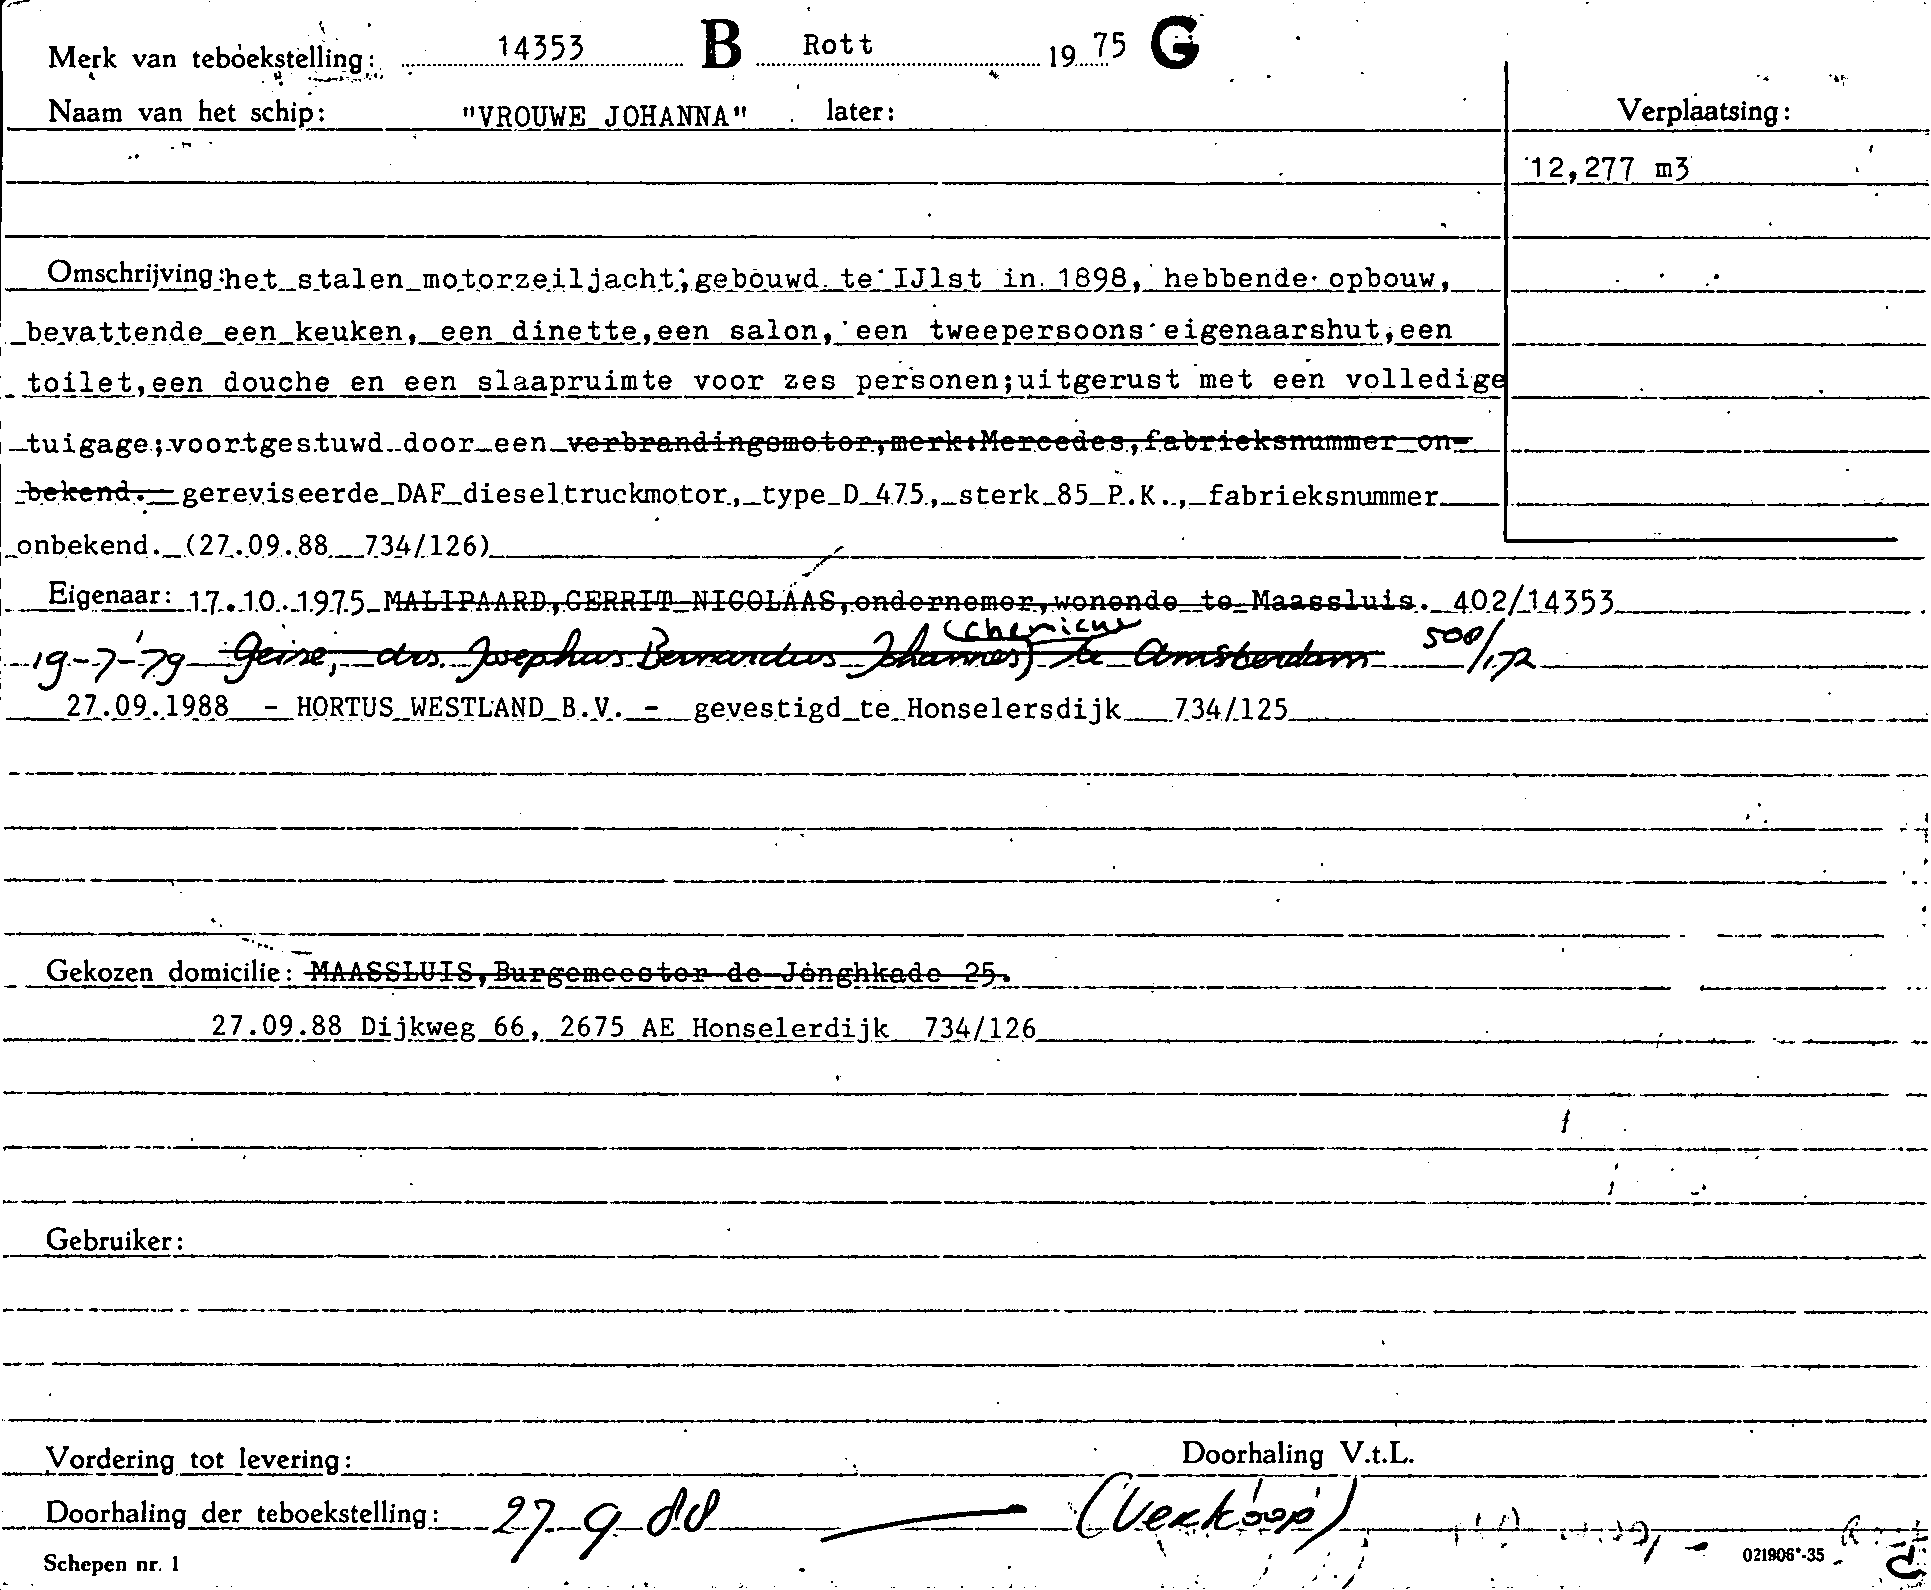 Merk van teboekstelling: 14353 B Rott 1975 G
Naam van het schip: "VROUWE JOHANNA" later: Verplaatsing:
12,277 m3
Omschrijving: het stalen motorzeiljacht, gebouwd te IJlst in 1898, hebbende opbouw,
bevattende een keuken, een dinette, een salon, een tweepersoons eigenaarshut, een
toilet, een douche en een slaapruimte voor zes personen; uitgerust met een volledige
tuigage; voortgestuwd door een verbrandingsmotor, merk: Mercedes, fabrieksnummer on-
bekend. gereviseerde DAF dieseltruckmotor, type D 475, sterk 85 P.K., fabrieksnummer
onbekend. (27.09.88 734/126)
Eigenaar: 17.10.1975 MALIPAARD, GERRIT NICOLAAS, ondernemer, wonende te Maassluis. 402/14353
19-7-'79 Geise, drs. Josephus Bernardus Johannes (chemicus) te Amsterdam 500/172
27.09.1988 - HORTUS WESTLAND B.V. - gevestigd te Honselersdijk 734/125
Gekozen domicilie: MAASSLUIS, Burgemeester de Jonghkade 25.
27.09.88 Dijkweg 66, 2675 AE Honselerdijk 734/126
Gebruiker:
Vordering tot levering: Doorhaling V.t.L.
Doorhaling der teboekstelling: 27.9.88 — (Verkoop)
Schepen nr. 1 021906*-35